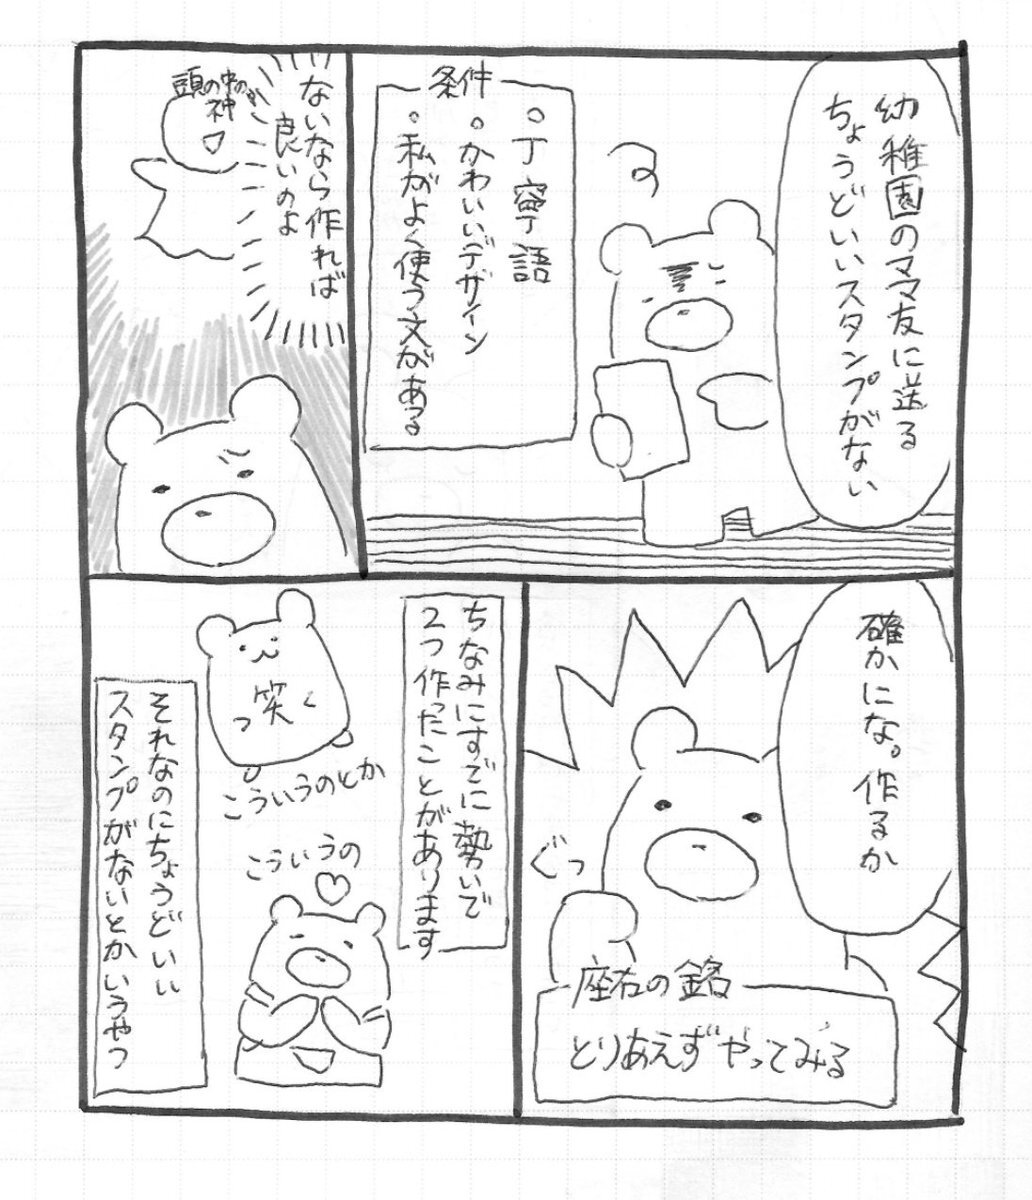 幼稚園のママ友に送る
ちょうどいいスタンプがない
条件
。丁寧語
。かわいいデザイン
。私がよく使う文がある
ないなら作れば
良いのよ
頭の中の
神
確かにな。作るか
ぐっ
座右の銘
とりあえずやってみる
ちなみにすでに勢いで
2つ作ったことがあります
笑
こういうのとか
こういうの
それなのにちょうどいい
スタンプがないとかいうやつ